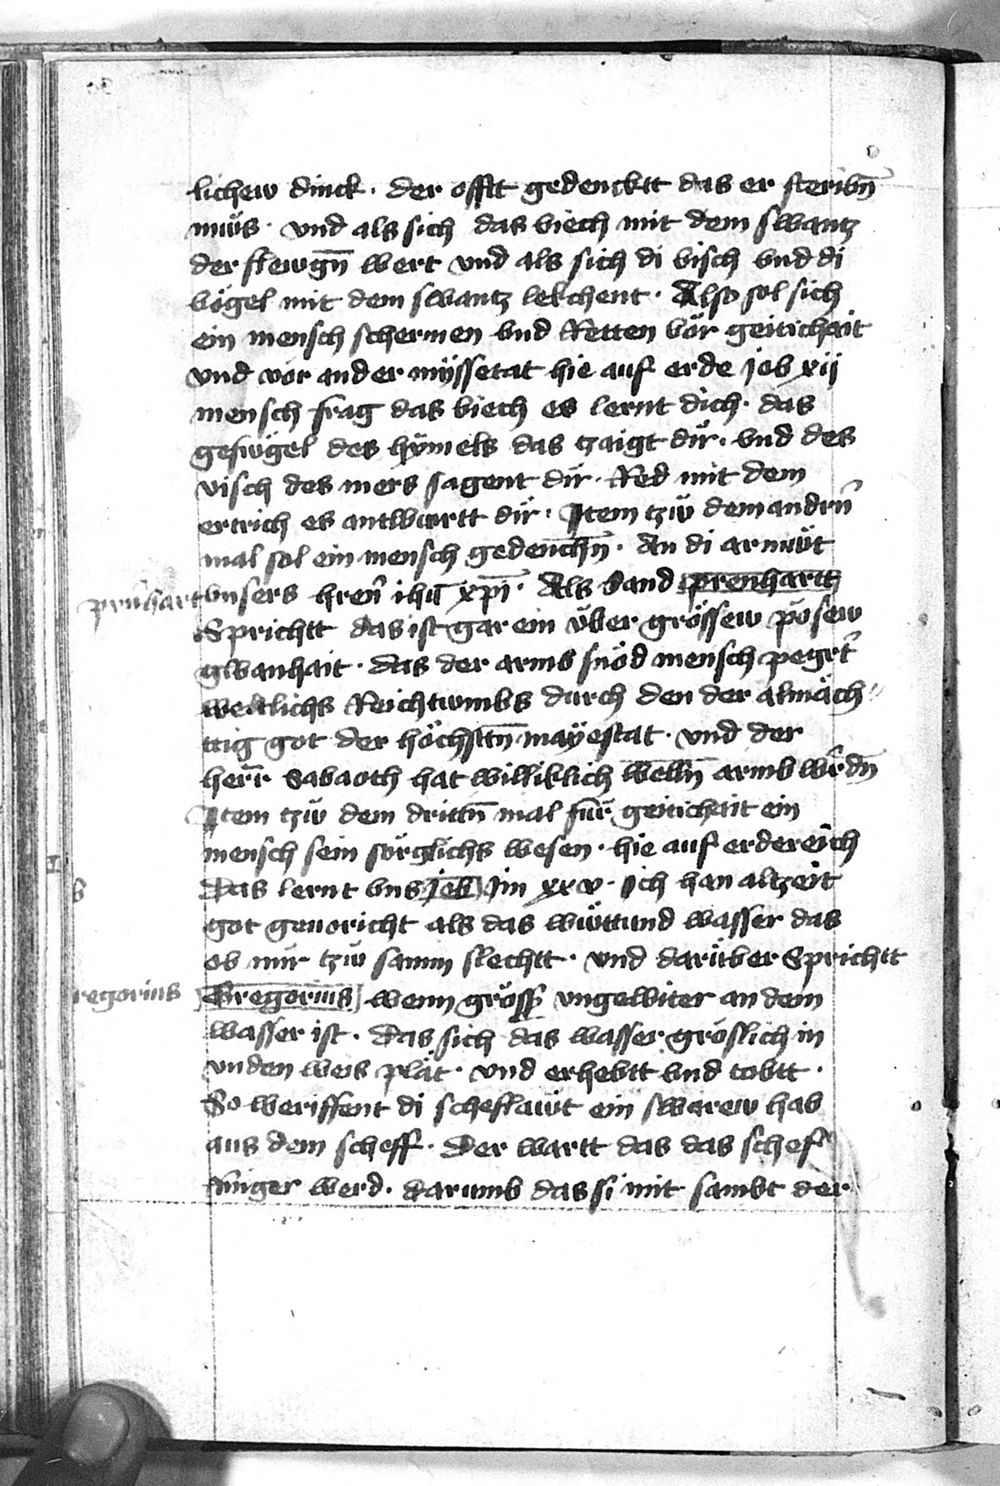 lichew dinck · der offtt gedencktt das er steribn̄
muͤs · vnd als sich das viech mit dem swantz
der flewgn̄ wert vnd als sich di visch vnd di
vögel mit dem swantz lekchent · Also sol sich
ein mensch schermen vnd Retten vör geitichait
vnd vör ander myssetat hie auf erde job xij
mensch frag das viech es lernt dich · das
gefwgel des hymels das tzaigt dir · vnd des
visch des mers sagent dir · Red mit dem
ertrich es antwurtt dir · Jtem tzw dem andrn̄
mal sol ein mensch gedenchn̄ · An di armuͤt
prnhart vnsers hren̄ ihū xp̄i · Als sand prenhartt
Sprichtt das ist gar ein über grössew pösew
gwanhait · das der armb snöd mensch pegrt̄
weltlichs Reichtumbs durch den der almäch
ttig got der höchstn̄ mayestat · vnd der
herr̄ Sabaoth hat williklich welln̄ armb wrdn̄
Jtem tzw dem drittn̄ mal für geitichait ein
mensch sein sörglichs wesen · hie auf erdereich
Das lernt vns job Jm xxv · Jch han altzeit
got gevoricht als das wüttund wasser das
ob mir tzw samm slechtt · vnd darüber Sprichtt
regorius Gregorius wenn gröss vngewiter an dem
wasser ist · Das sich das wasser gröslich in
vnden weis plät · vnd erhebtt vnd tobtt ·
So werffent di scheflawt ein swarew hab
aus dem scheff · Der wartt das das schef
ringer werd · darumb das si mit sambt der